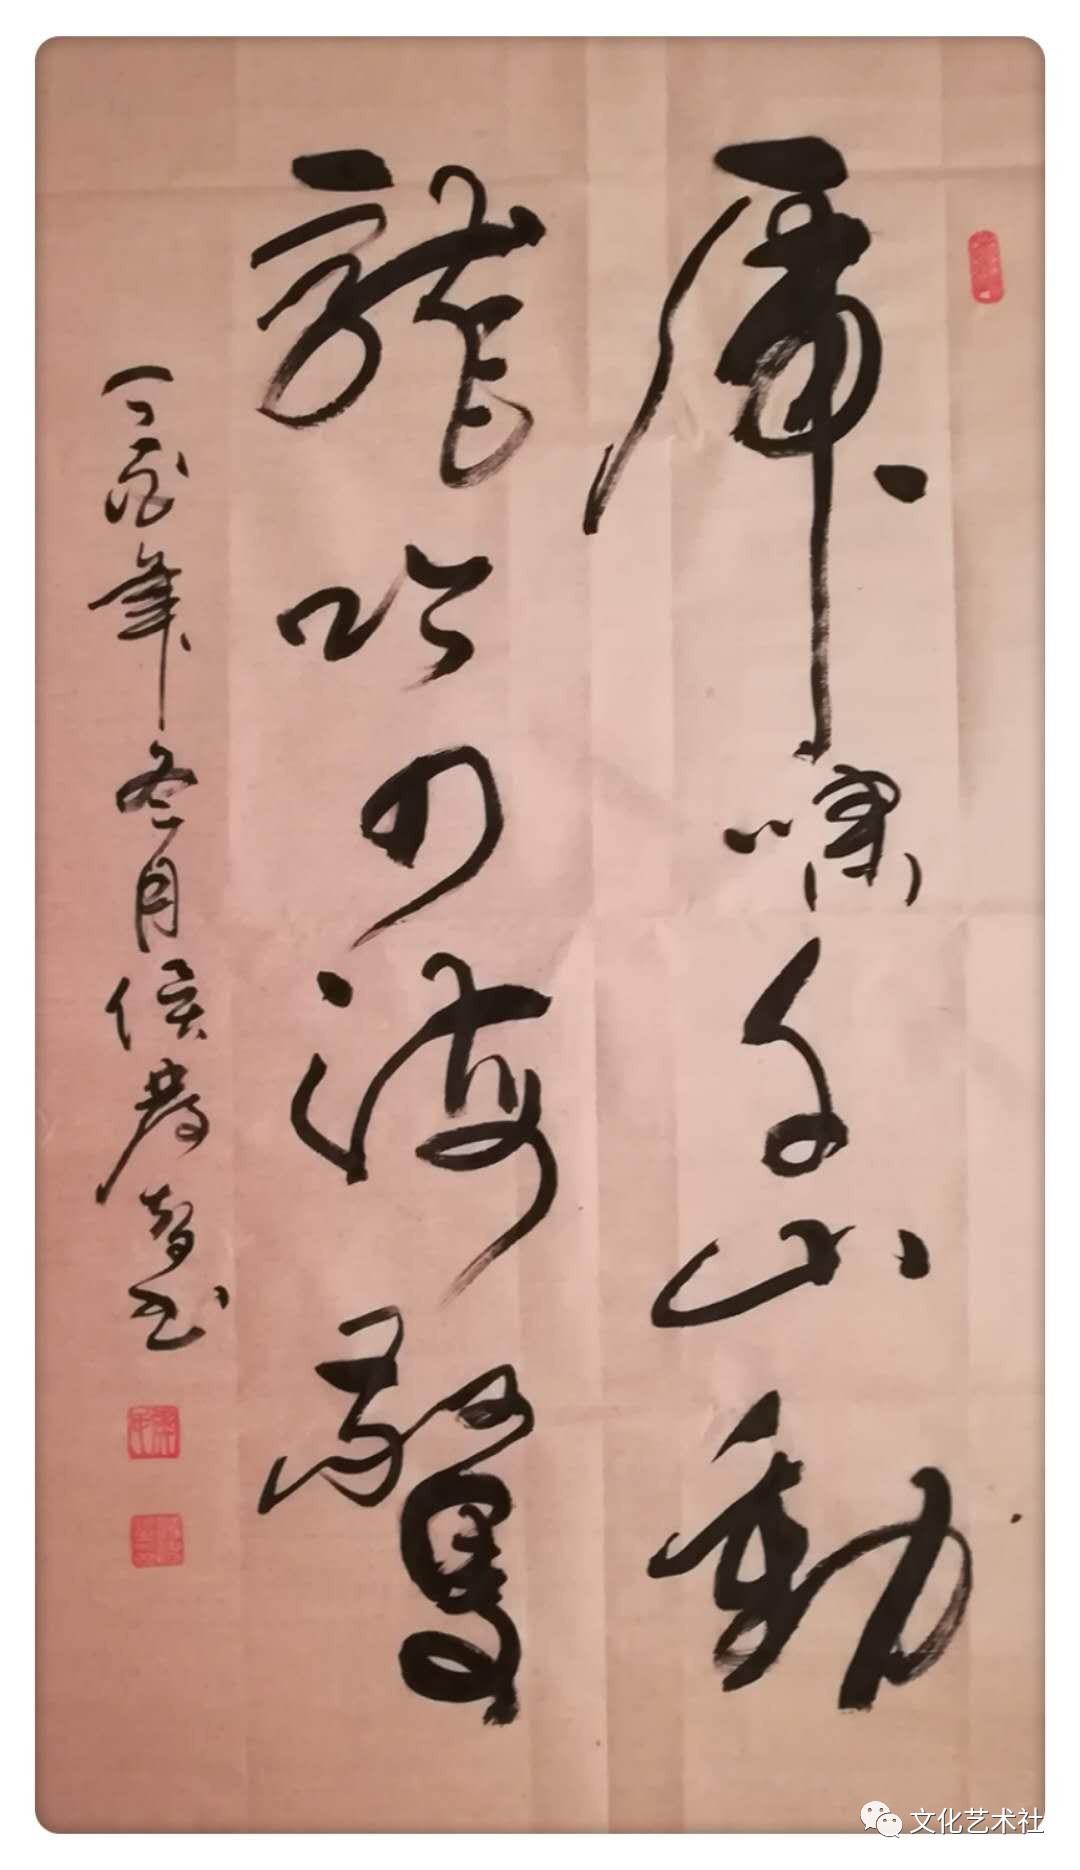 虎嘯千山動
龍吟四海驚
丁酉年冬月侯孝智书
文化艺术社